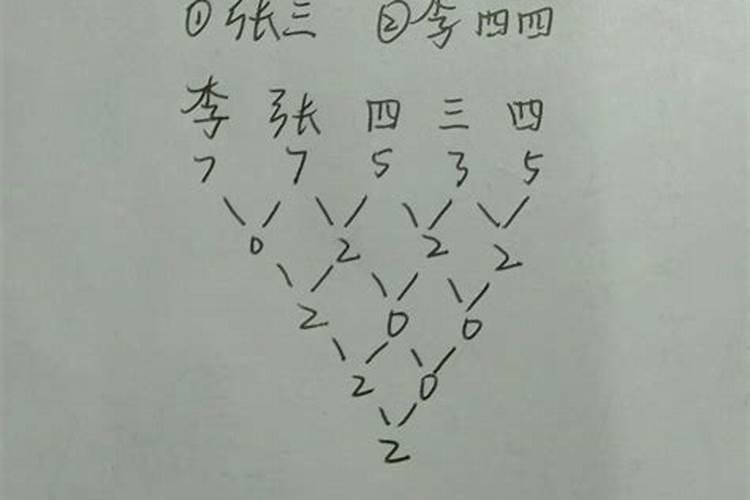 ①张三 ②李四四
李 张 四 三 四
7 7 5 3 5
0 2 2 2
2 0 0
2 0
2